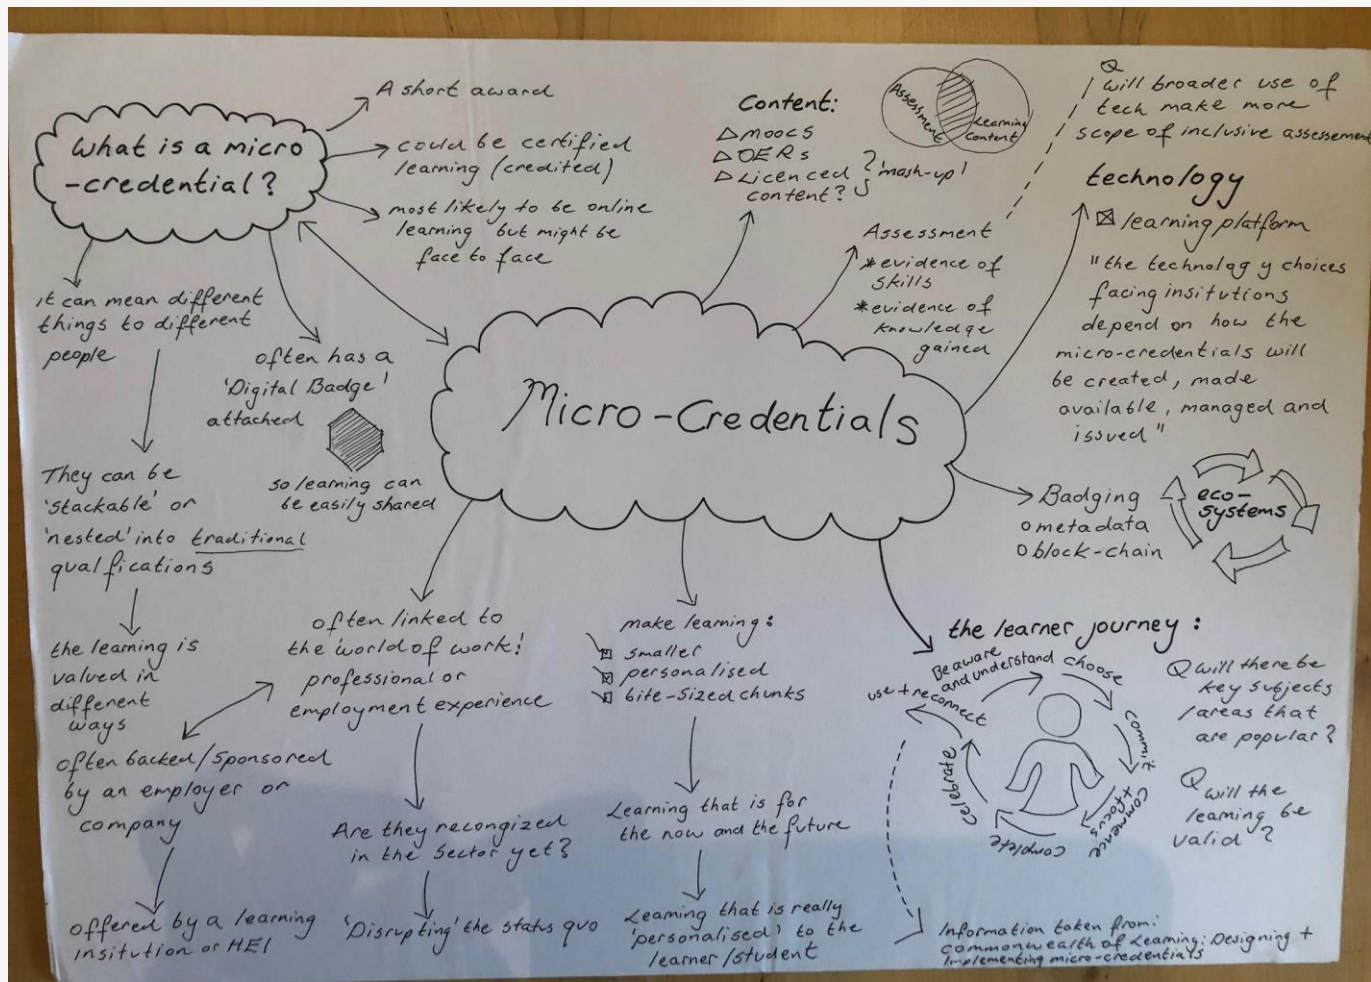 What is a micro
-credential?
A short award
could be certified
learning (credited)
most likely to be online
learning but might be
face to face
it can mean different
things to different
people
often has a
'Digital Badge'
attached
so learning can
be easily shared
They can be
'stackable' or
'nested' into traditional
qualfications
the learning is
valued in
different
ways
Micro-Credentials
Content:
△ MOOCS
△ OERs
△ Licenced
content?
'mash-up'
Assessment
Learning
Content
Assessment
*evidence of
skills
*evidence of
knowledge
gained
Q will broader use of
tech make more
scope of inclusive assessement
technology
☒ learning platform
"the technology choices
facing insitutions
depend on how the
micro-credentials will
be created, made
available, managed and
issued"
Badging
o metadata
o block-chain
eco-
systems
often linked to
the 'world of work'
professional or
employment experience
often backed/sponsored
by an employer or
company
offered by a learning
insitution or HEI
Are they recongized
in the sector yet?
'Disrupting' the status quo
make learning:
☒ smaller
☒ personalised
☒ bite-sized chunks
Learning that is for
the now and the future
Learning that is really
'personalised' to the
learner/student
the learner journey:
Be aware
and understand
choose
commit
commence
+ focus
complete
celebrate
use + reconnect
Q will there be
key subjects
/areas that
are popular?
Q will the
learning be
valid?
Information taken from:
commonwealth of Learning: Designing +
Implementing micro-credentials